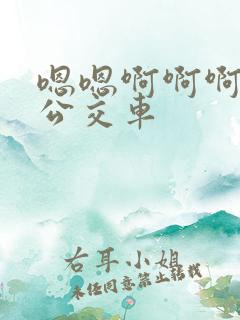 嗯嗯啊啊啊
公交车
右耳小姐
未经同意禁止转载